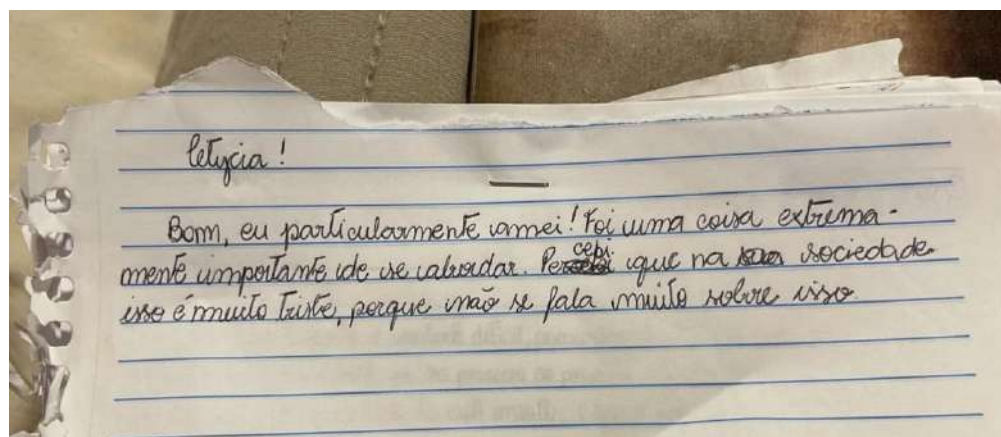 letycia!
Bom, eu particularmente amei! Foi uma coisa extrema-
mente importante de se abordar. Percebi que na sociedade
isso é muito triste, porque não se fala muito sobre isso.